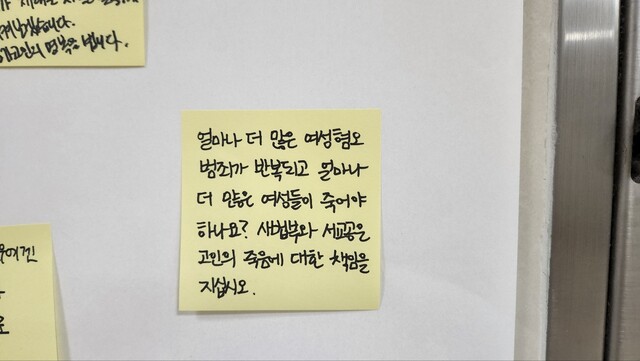 고인의 명복을 빕니다.
얼마나 더 많은 여성혐오
범죄가 반복되고 얼마나
더 많은 여성들이 죽어야
하나요? 사법부와 서교공은
고인의 죽음에 대한 책임을
지십시오.